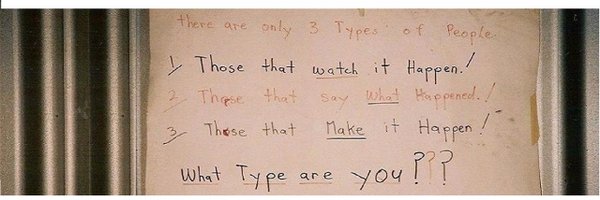 there are only 3 Types of People
1/ Those that watch it Happen!
2/ Those that say What Happened!
3/ Those that Make it Happen!
What Type are you???